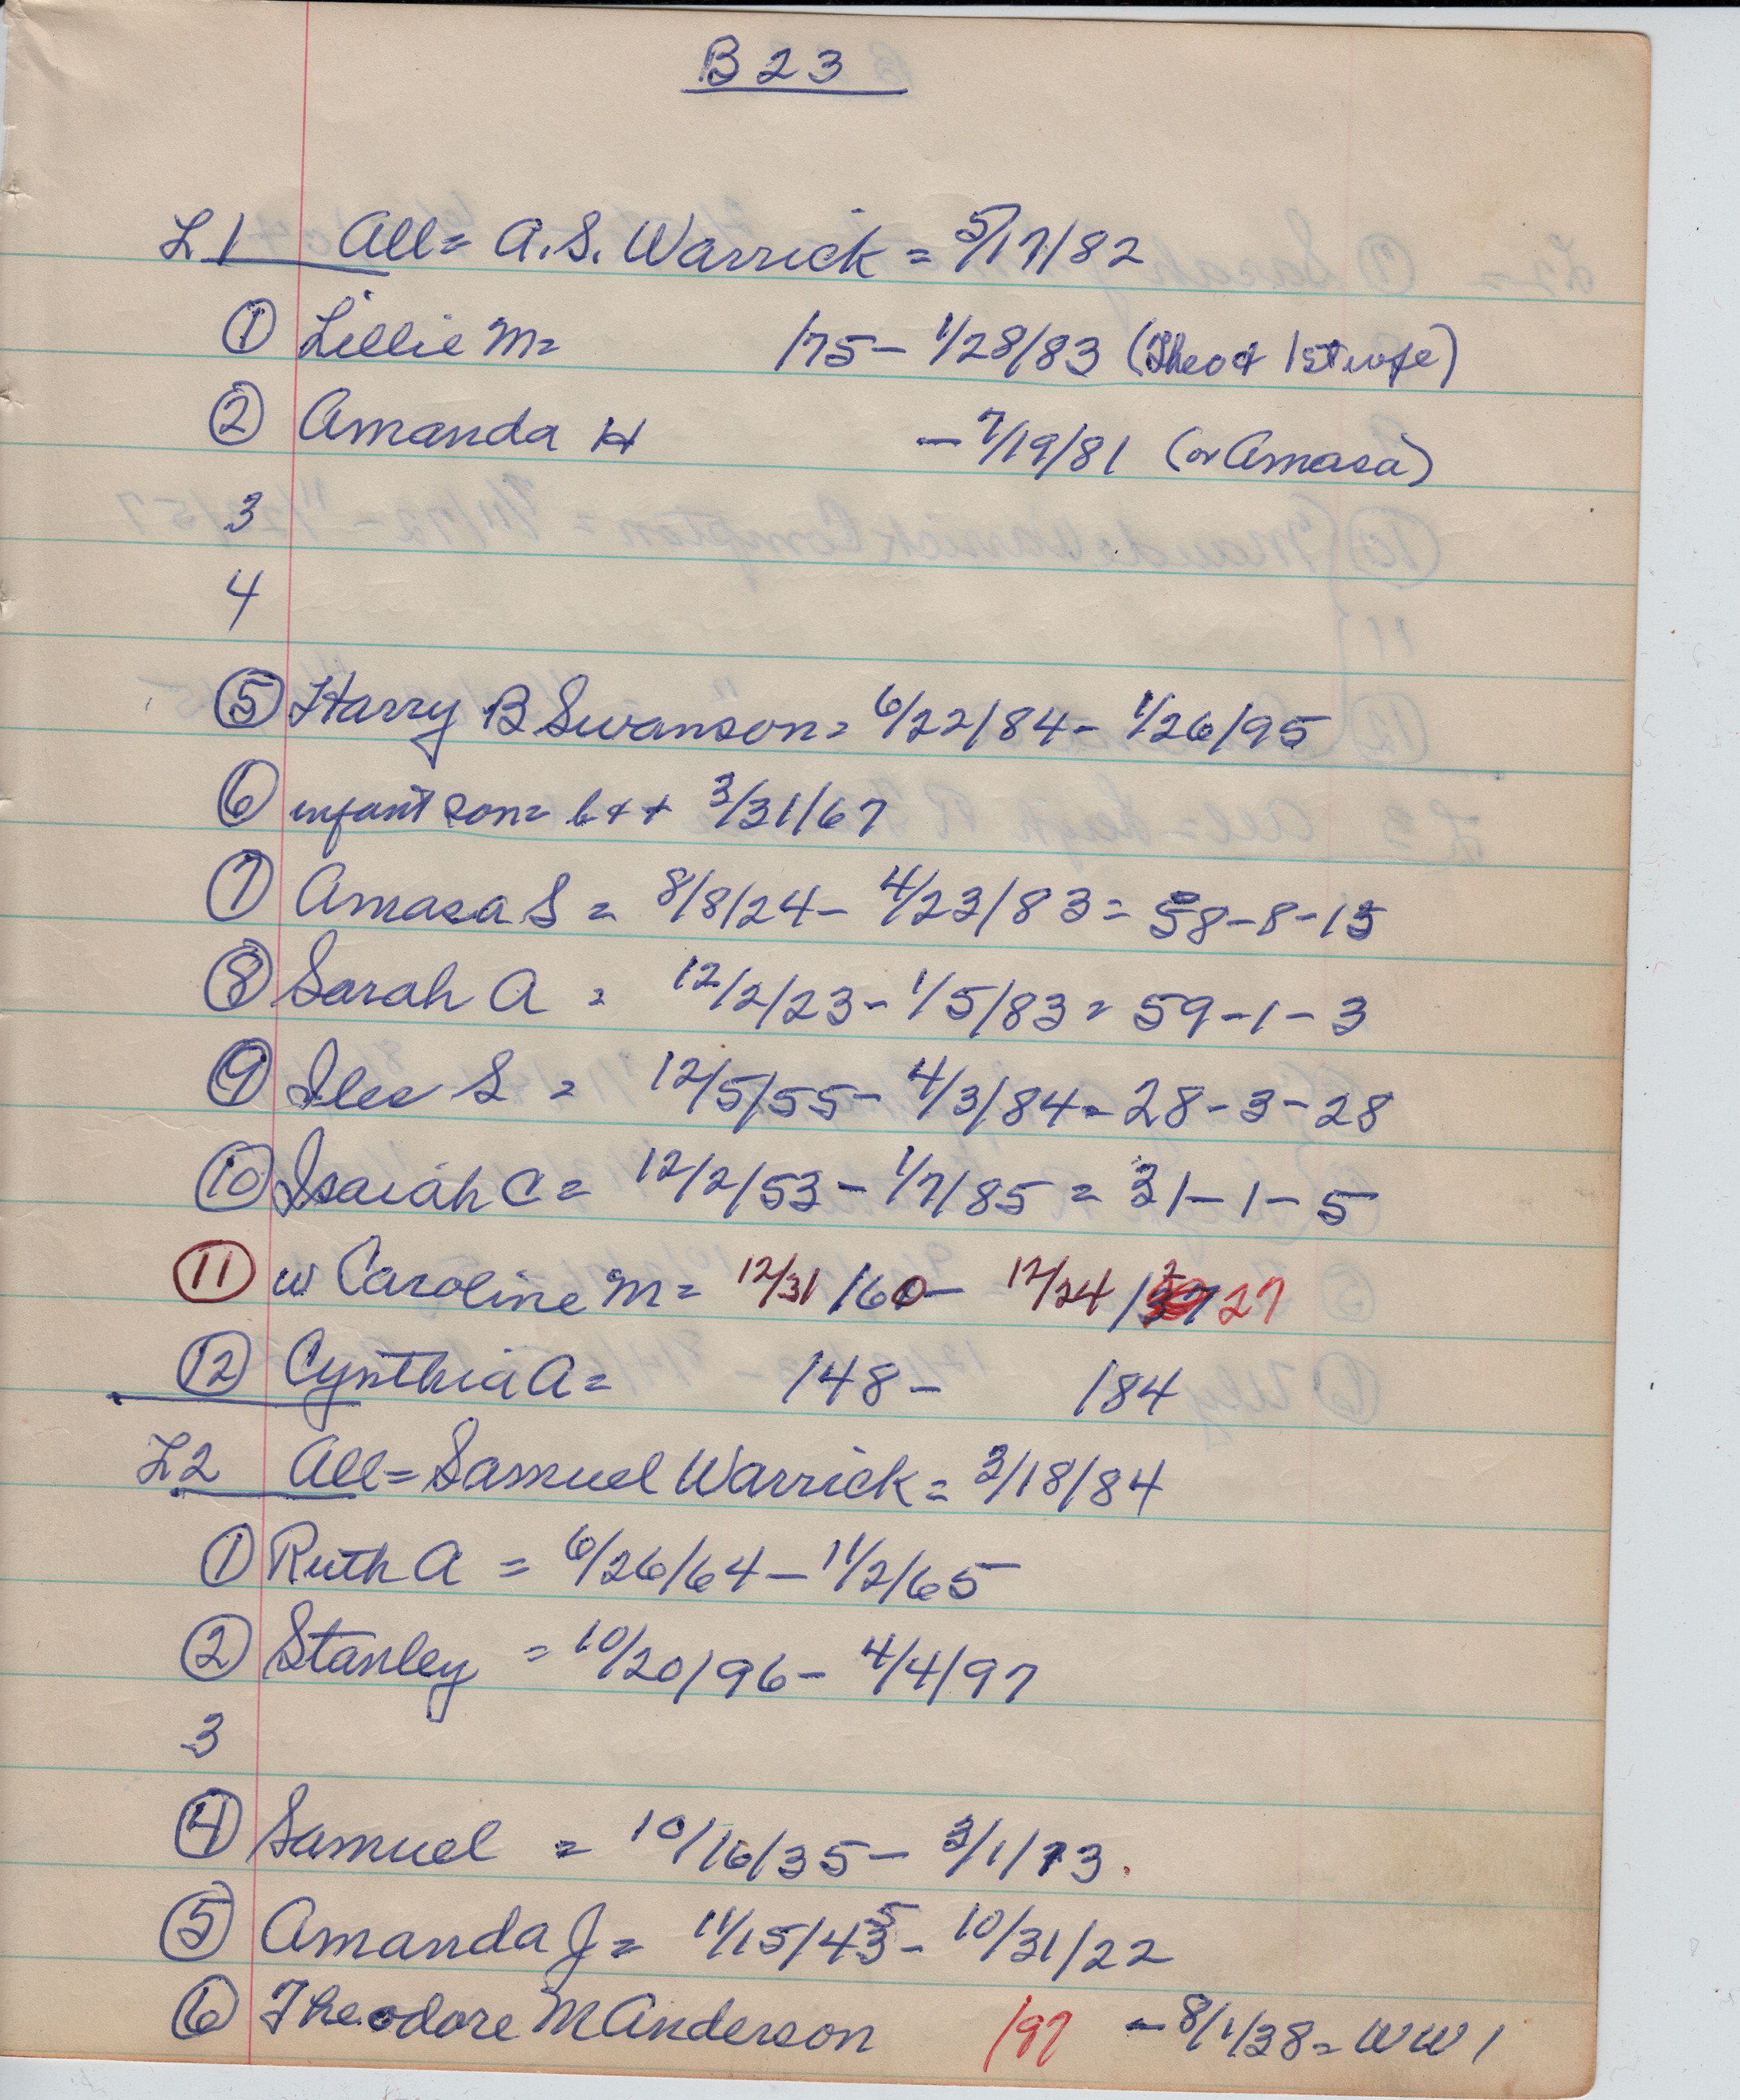 B 23
L1 All = A.S. Warrick = 5/17/82
① Lillie M = /75 - 1/28/83 (Theo + 1st wife)
② Amanda H - 7/19/81 (or Amasa)
3
4
⑤ Harry B Swanson = 6/22/84 - 1/26/95
⑥ infant son = b + + 3/31/67
⑦ Amasa S = 8/8/24 - 4/23/83 = 58-8-15
⑧ Sarah A = 12/2/23 - 1/5/83 = 59-1-3
⑨ Iles S = 12/5/55 - 4/3/84 = 28-3-28
⑩ Isaiah C = 12/2/53 - 1/7/85 = 31-1-5
⑪ w Caroline M = 12/31/60 - 12/24/ 27
⑫ Cynthia A = /48 - /84
L2 All = Samuel Warrick = 3/18/84
① Ruth A = 6/26/64 - 11/2/65
② Stanley = 10/20/96 - 4/4/97
3
④ Samuel = 10/16/35 - 3/1/73.
⑤ Amanda J = 11/15/43 5 - 10/31/22
⑥ Theodore M Anderson /97 - 8/1/38 = WW1